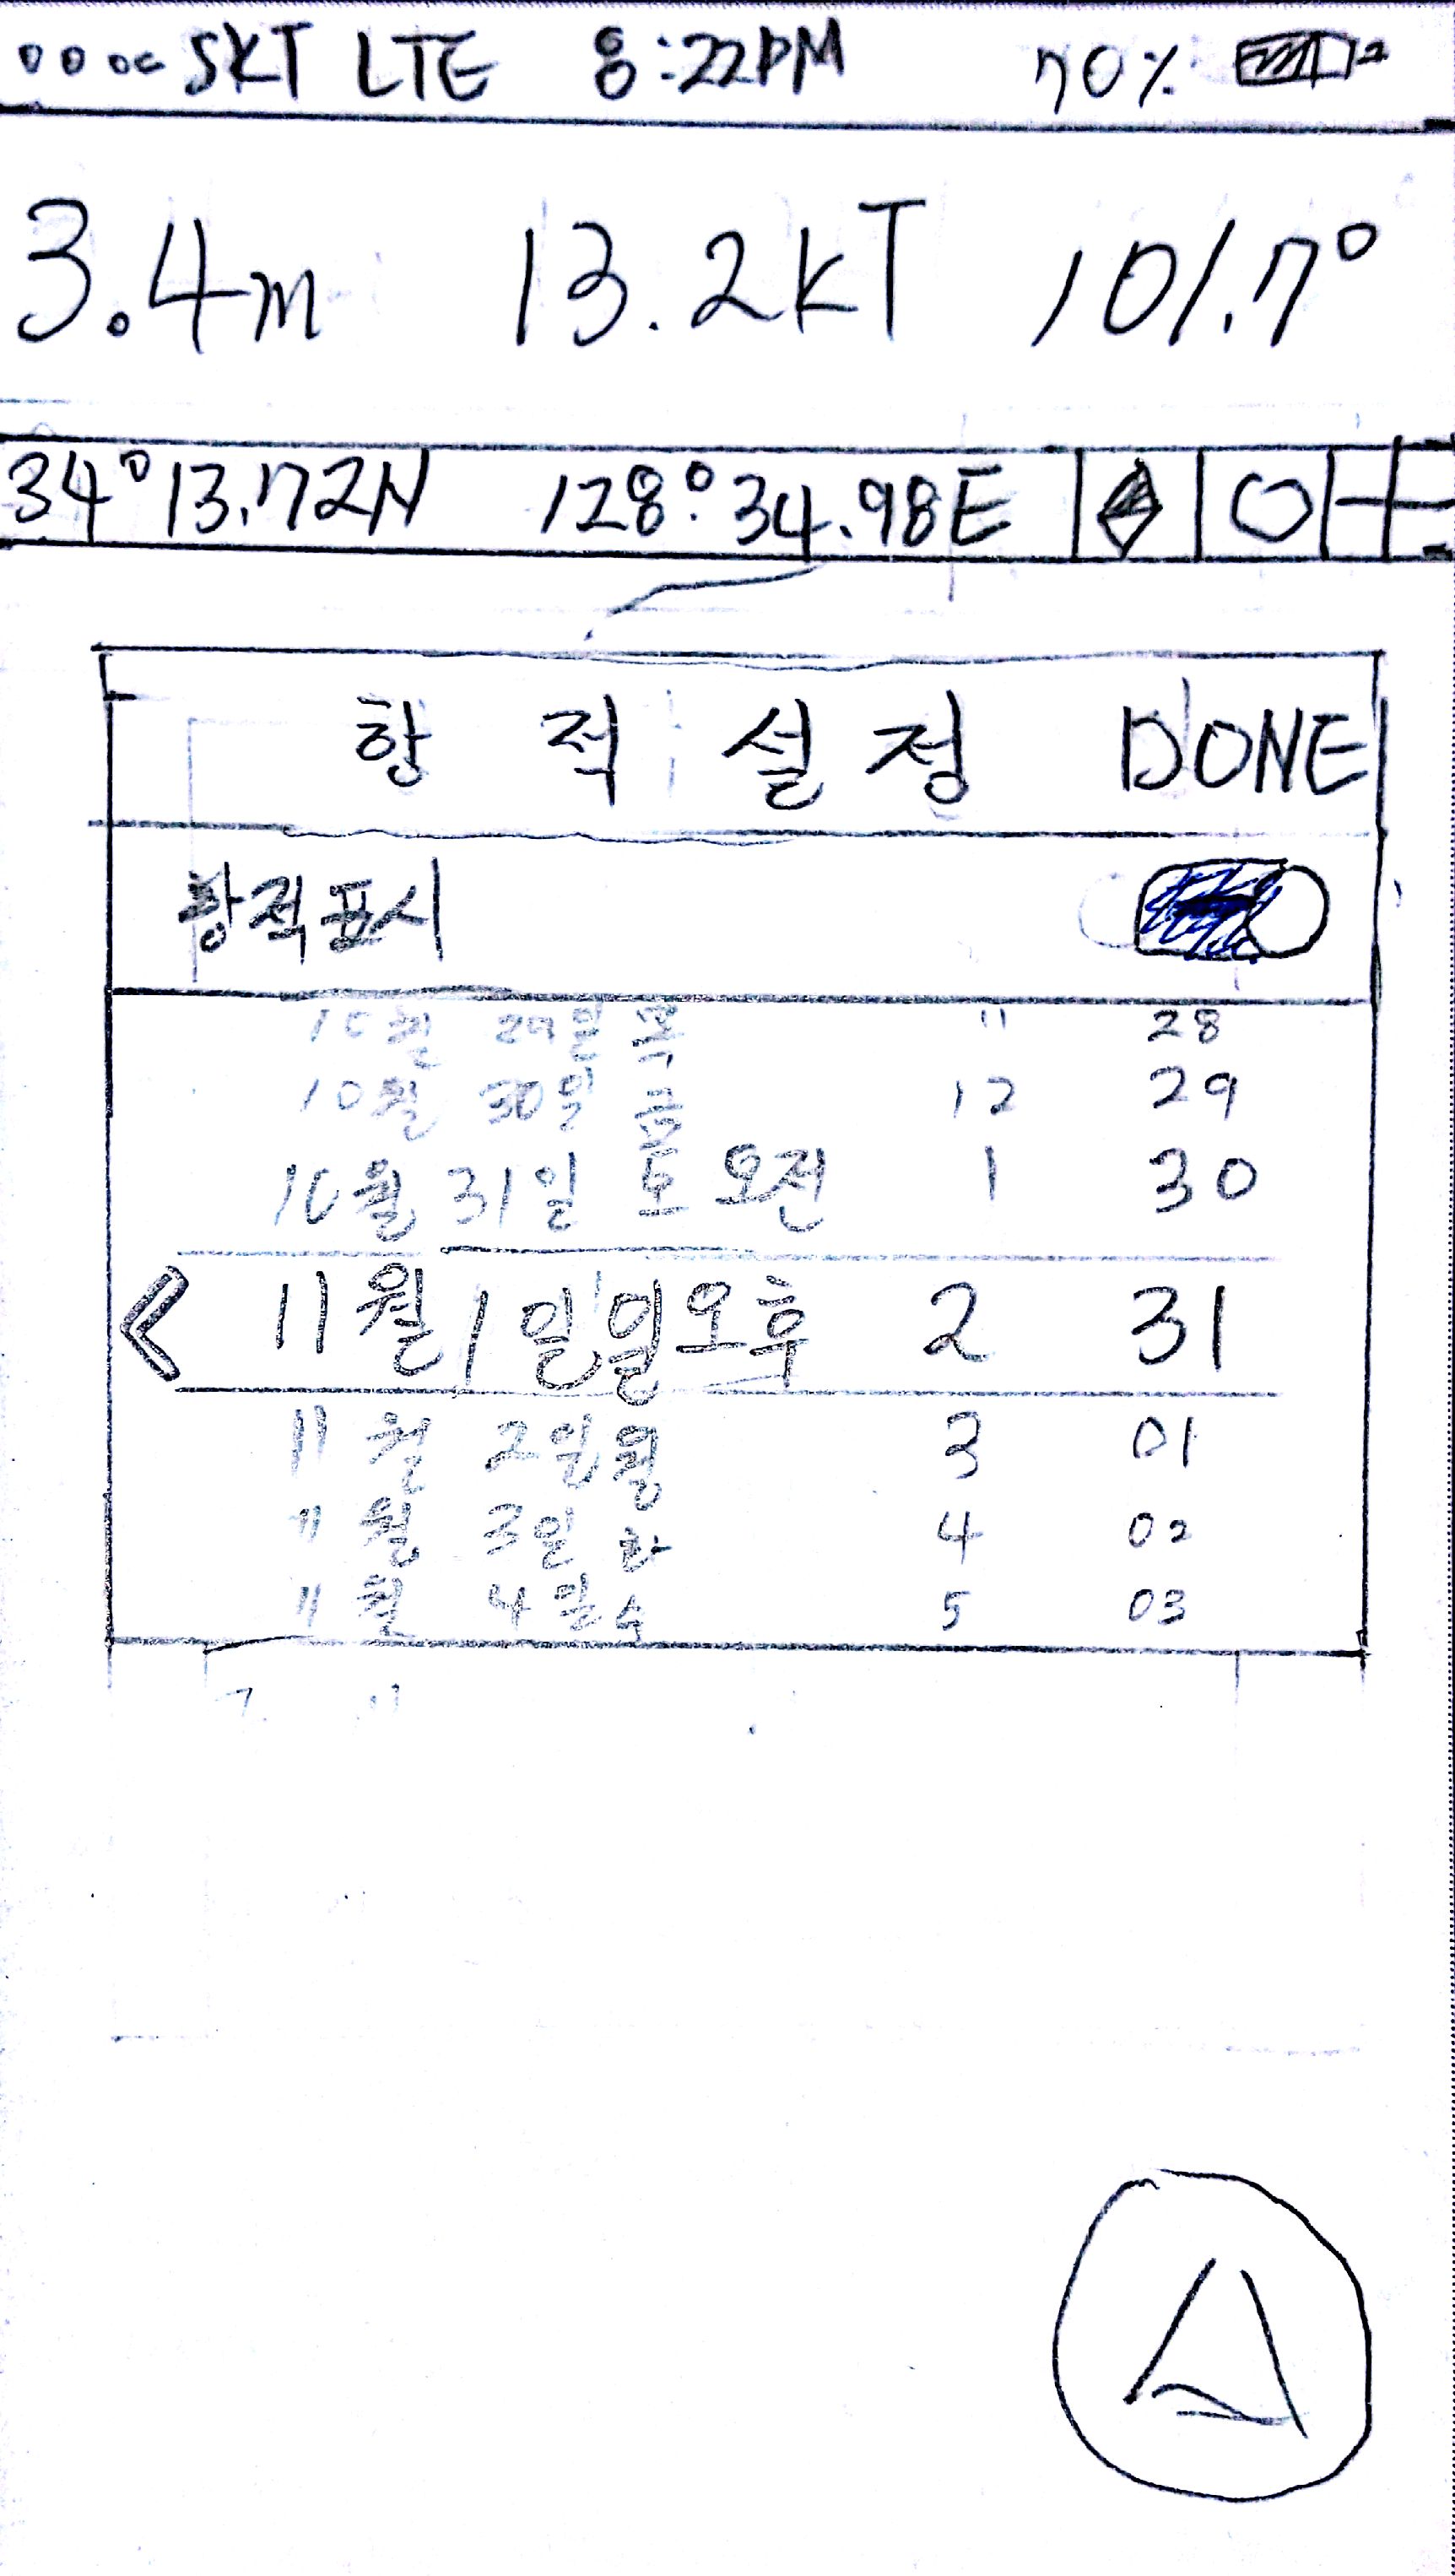 SKT LTE 8:22PM 70%
3.4m 13.2kT 101.7°
34°13.72N 128°34.98E
항적설정 DONE
항적표시
10월 29일 목 11 28
10월 30일 금 12 29
10월 31일 토 오전 1 30
11월 1일 일 오후 2 31
11월 2일 월 3 01
11월 3일 화 4 02
11월 4일 수 5 03